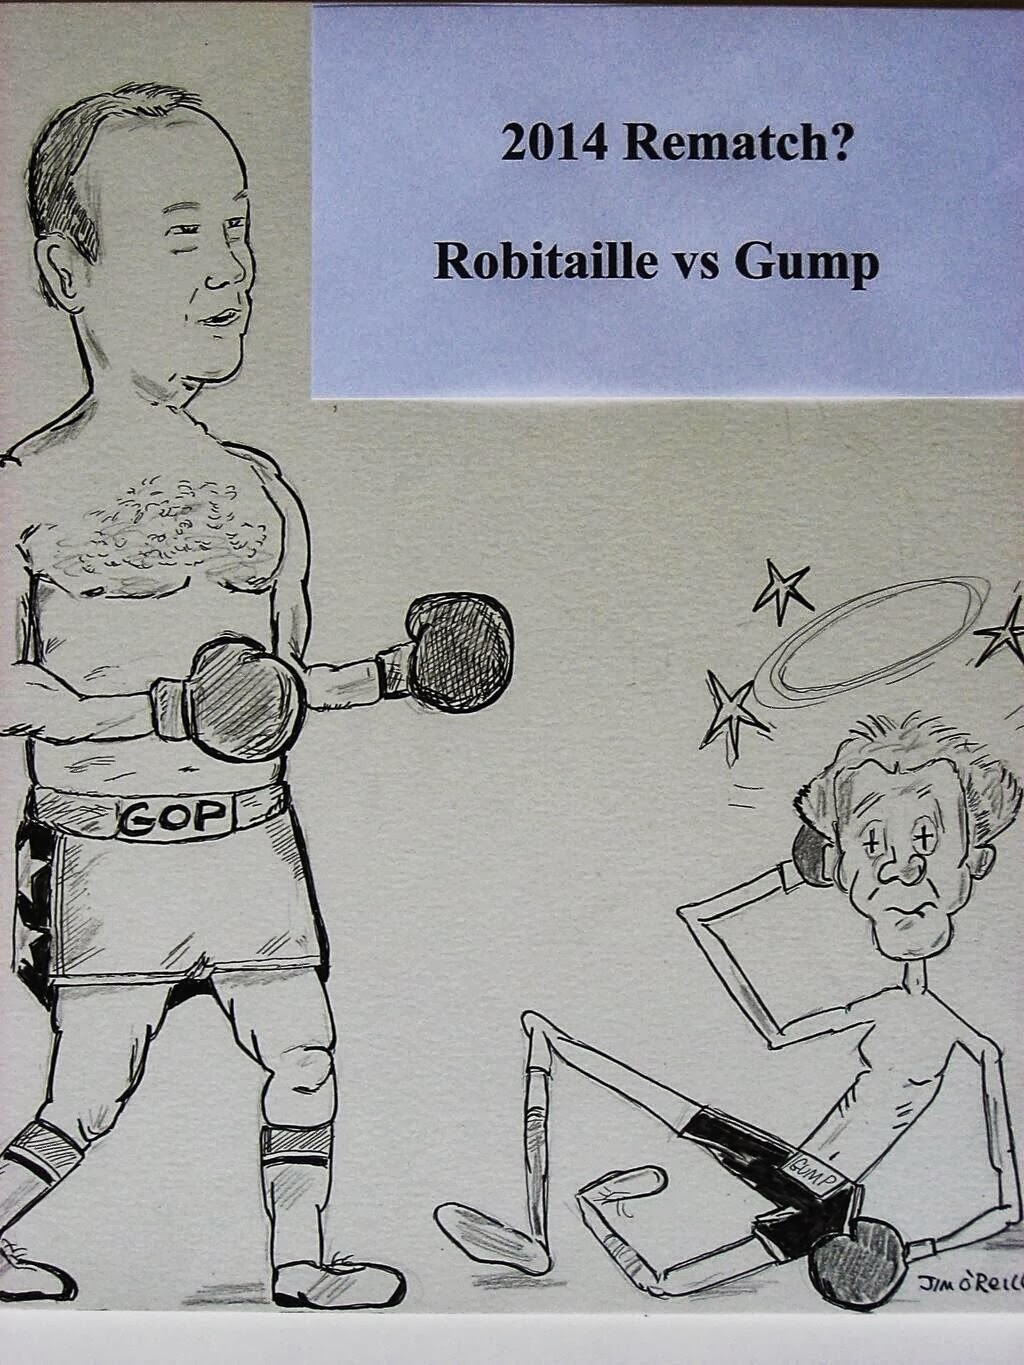 2014 Rematch?
Robitaille vs Gump
GOP
GUMP
JIM O'REILL